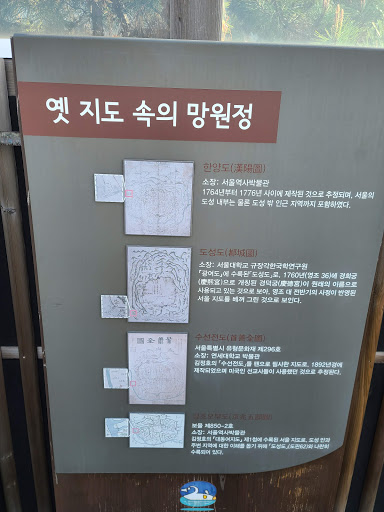 옛 지도 속의 망원정
한양도(漢陽圖)
소장: 서울역사박물관
1764년부터 1776년 사이에 제작된 것으로 추정되며, 서울의
도성 내부는 물론 도성 밖 인근 지역까지 포함하였다.
도성도(都城圖)
소장: 서울대학교 규장각한국학연구원
「광여도」에 수록된「도성도」로, 1760년(영조 36)에 경희궁
(慶熙宮)으로 개칭된 경덕궁(慶德宮)이 원래의 이름으로
사용되고 있는 것으로 보아, 영조 대 전반기의 사정이 반영된
서울 지도를 베껴 그린 것으로 보인다.
수선전도(首善全圖)
서울특별시 유형문화재 제296호
소장: 연세대학교 박물관
김정호의 「수선전도」를 펜으로 필사한 지도로, 1892년경에
제작되었으며 미국인 선교사들이 사용했던 것으로 추정된다.
보물 제850-2호
소장: 서울역사박물관
김정호의 「대동여지도」 제1첩에 수록된 서울 지도로, 도성 안과
주변 지역에 대한 이해를 돕기 위해 「도성도」
수록되어 있다.